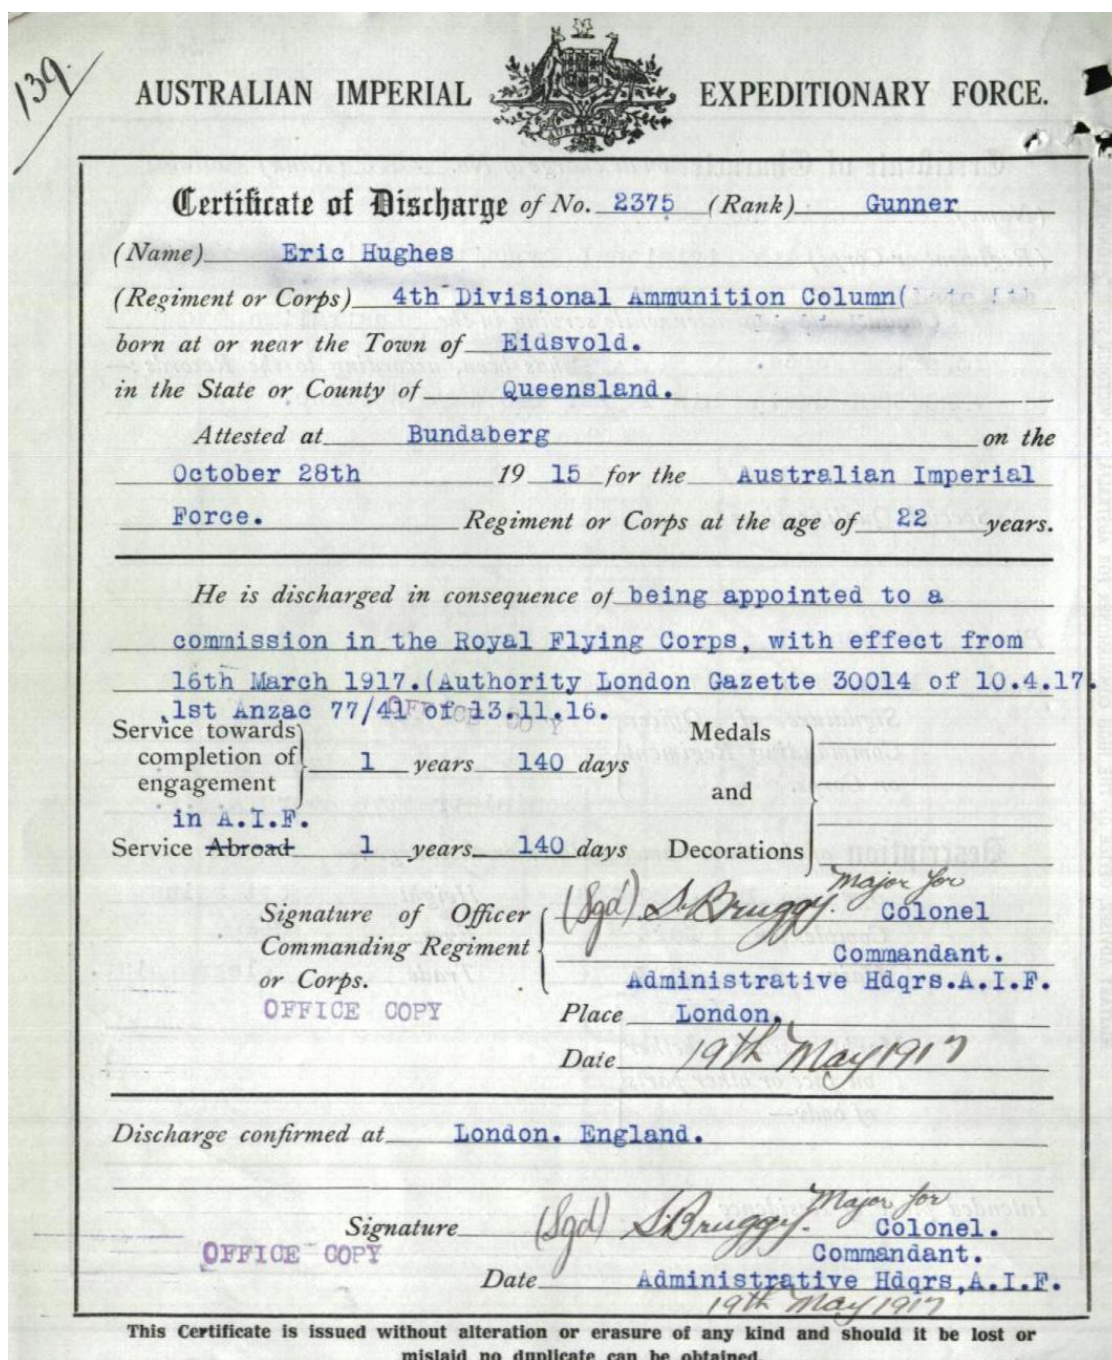 139.
AUSTRALIAN IMPERIAL EXPEDITIONARY FORCE.
AUSTRALIA
Certificate of Discharge of No. 2375 (Rank) Gunner
(Name) Eric Hughes
(Regiment or Corps) 4th Divisional Ammunition Column(
born at or near the Town of Eidsvold.
in the State or County of Queensland.
Attested at Bundaberg on the
October 28th 19 15 for the Australian Imperial
Force. Regiment or Corps at the age of 22 years.
He is discharged in consequence of being appointed to a
commission in the Royal Flying Corps, with effect from
16th March 1917.(Authority London Gazette 30014 of 10.4.17.
1st Anzac 77/41 of 13.11.16.
OFFICE COPY
Service towards completion of engagement 1 years 140 days
Medals and Decorations
in A.I.F.
Service Abroad 1 years 140 days
Signature of Officer Commanding Regiment or Corps.
(Sgd) S. Bruggy. Major for
Colonel
Commandant.
Administrative Hdqrs.A.I.F.
OFFICE COPY
Place London.
Date 19th May 1917
Discharge confirmed at London. England.
Signature (Sgd) S. Bruggy. Major for
Colonel.
OFFICE COPY
Commandant.
Date Administrative Hdqrs,A.I.F.
19th May 1917
This Certificate is issued without alteration or erasure of any kind and should it be lost or
mislaid no duplicate can be obtained.